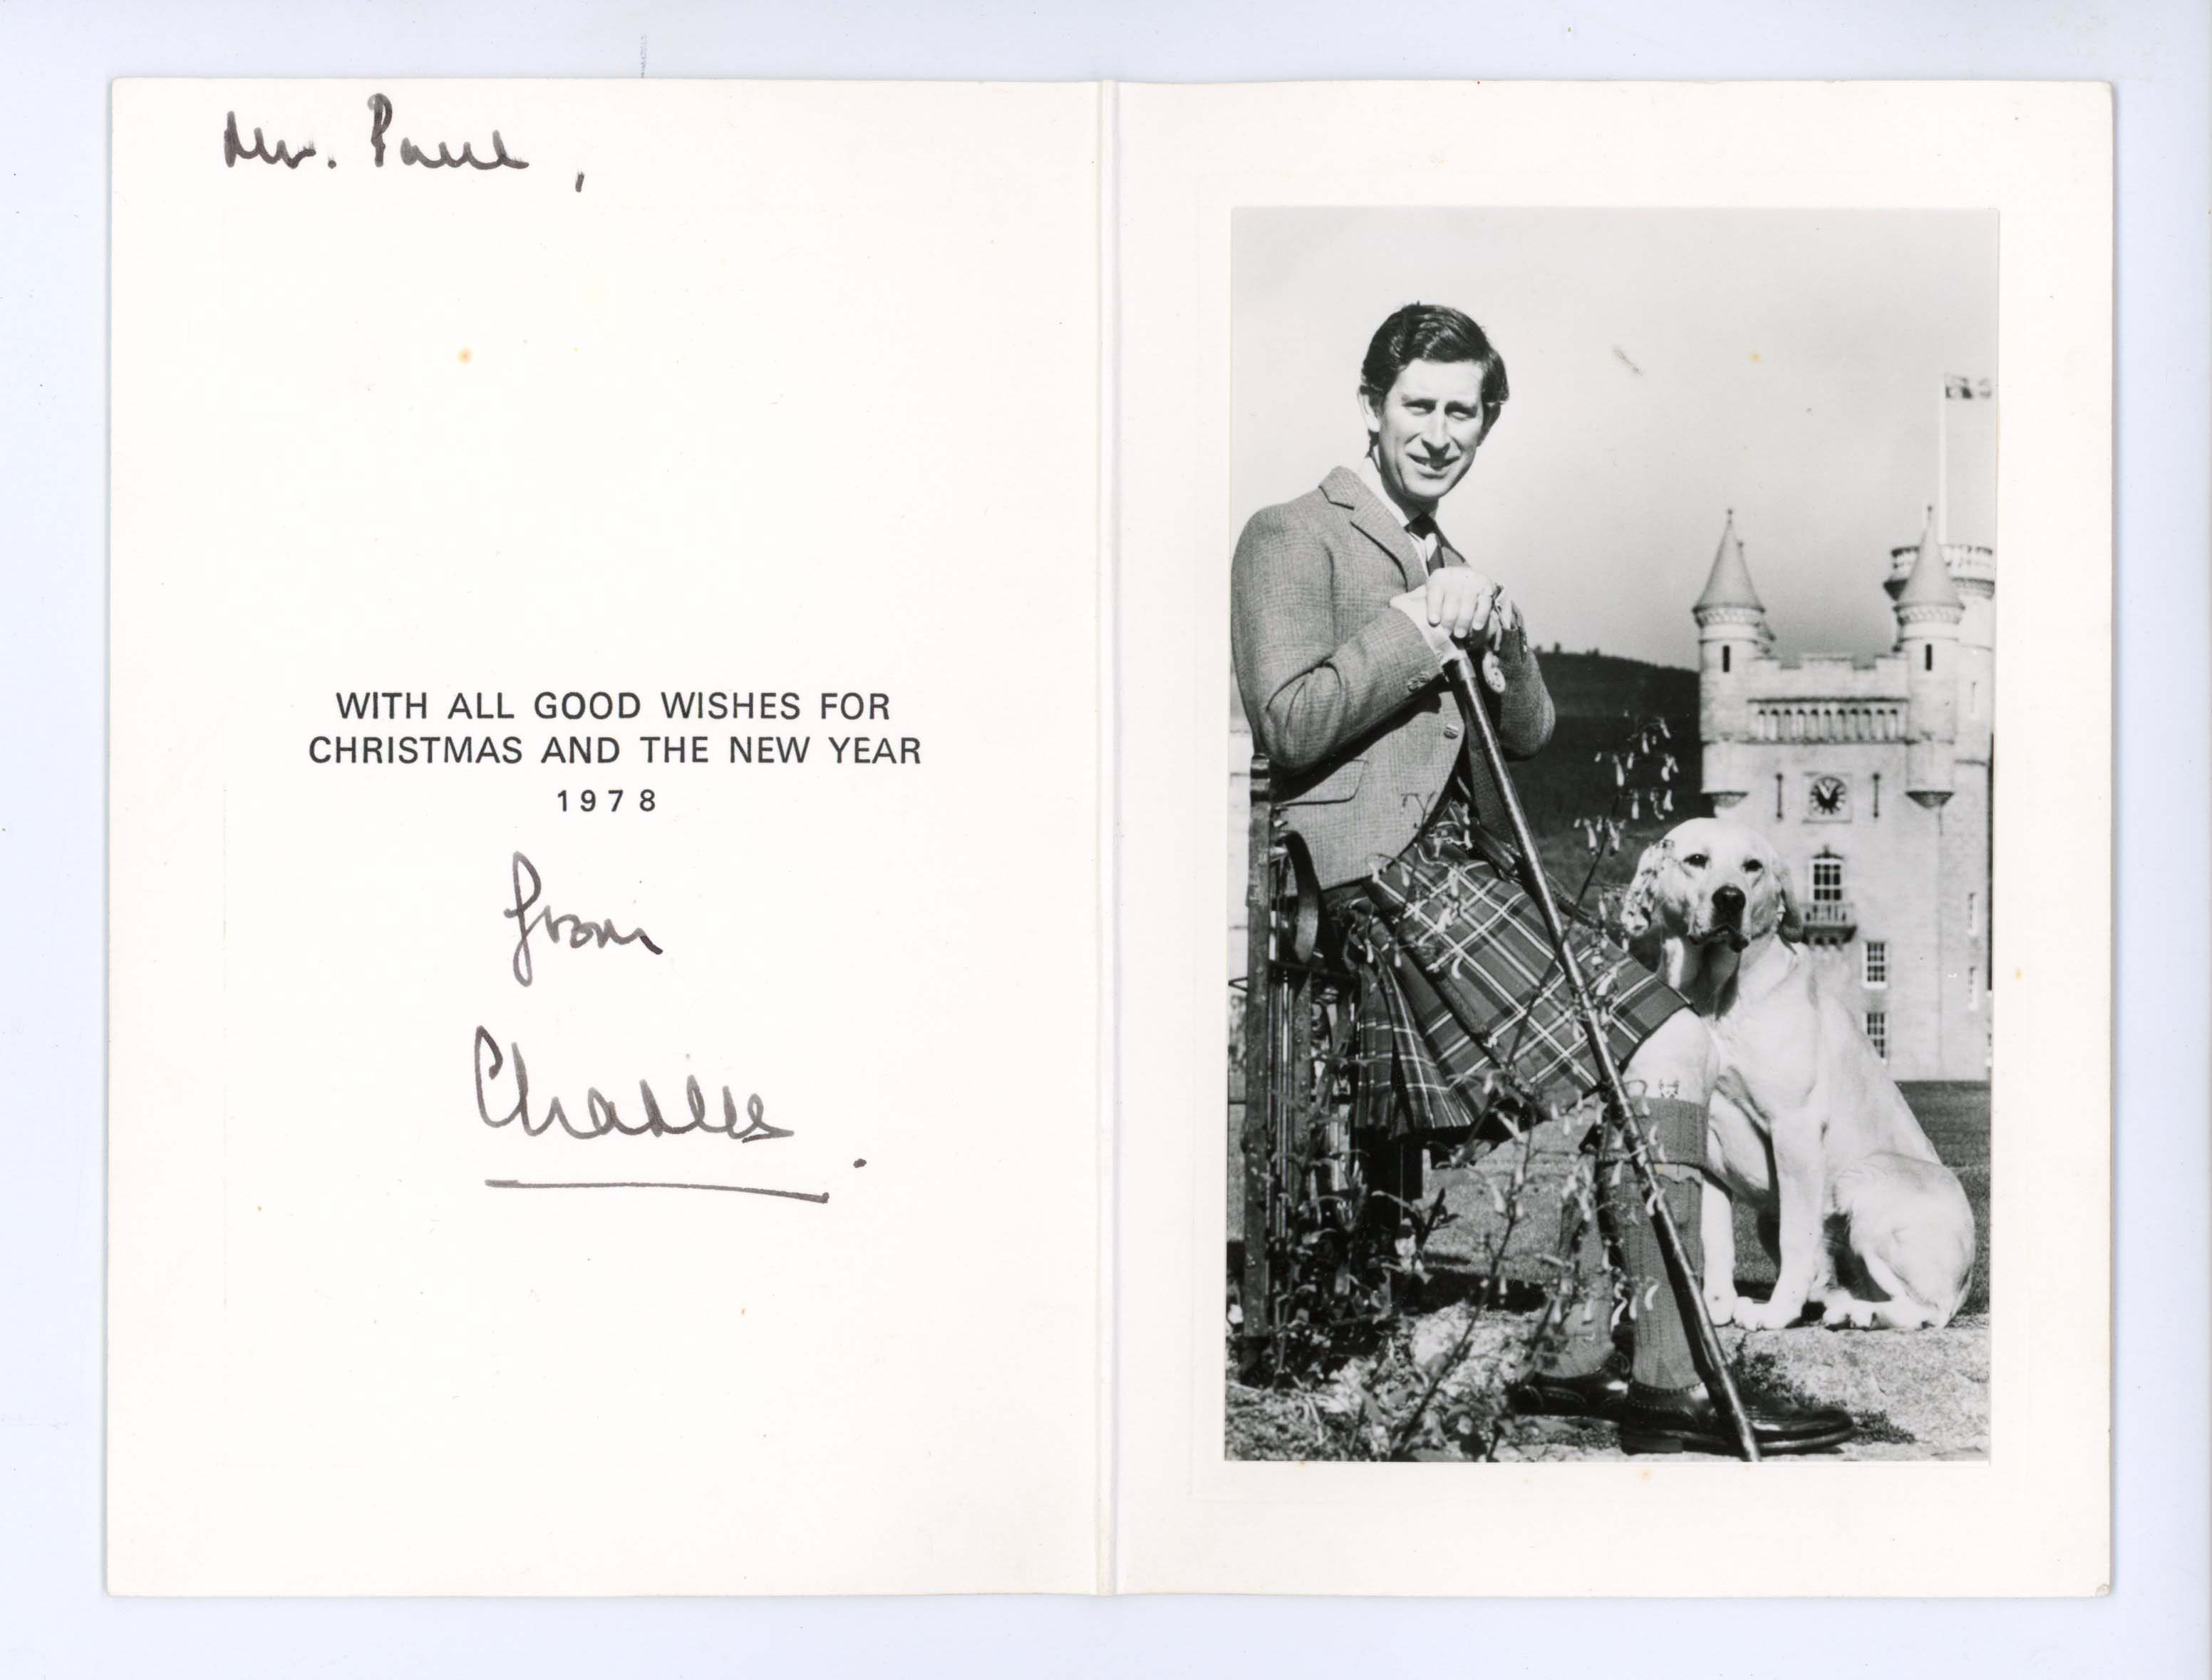 Mr. Paul,
WITH ALL GOOD WISHES FOR
CHRISTMAS AND THE NEW YEAR
1978
from
Charles.